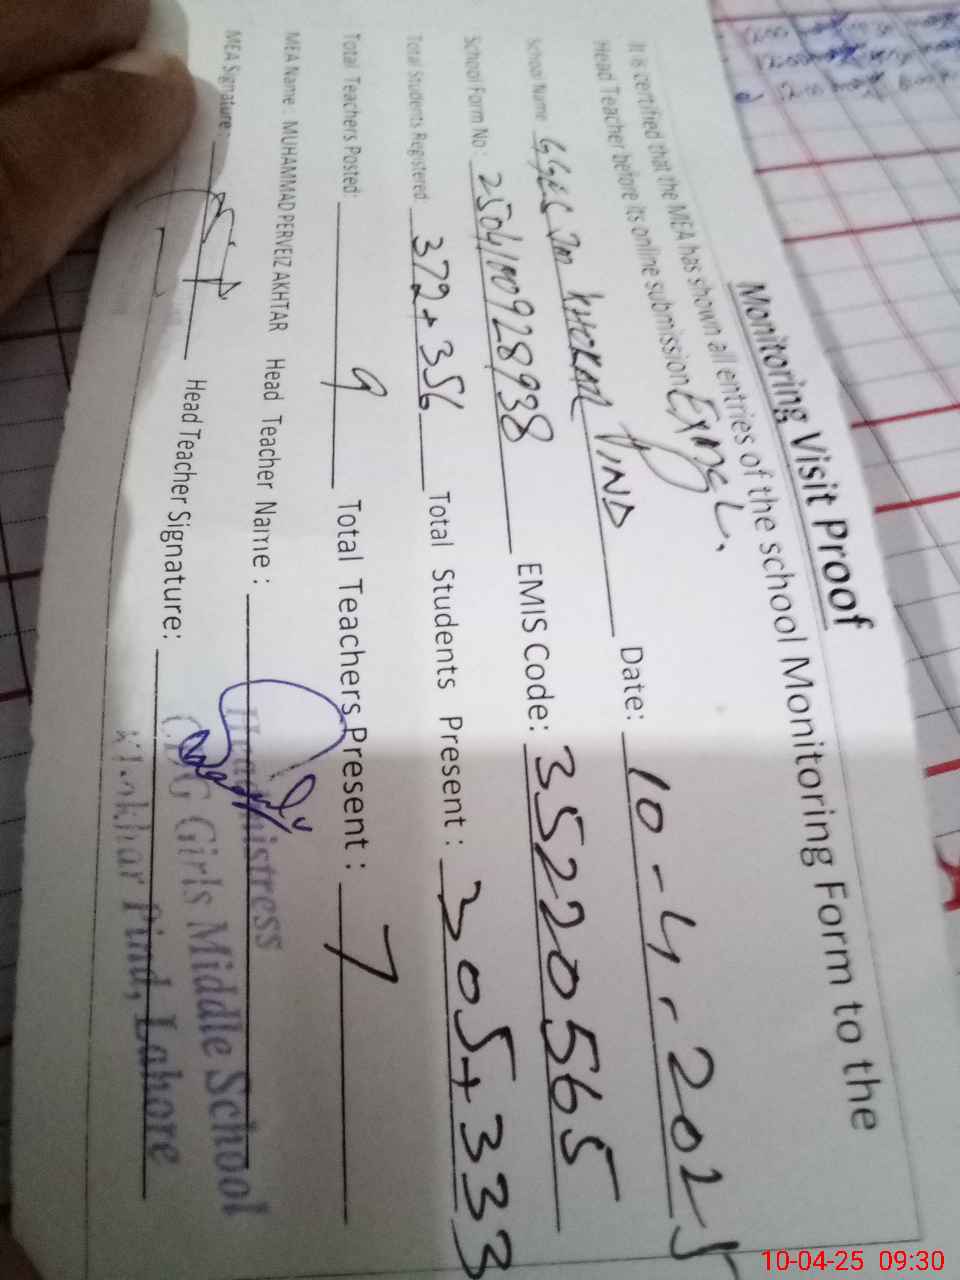 Monitoring Visit Proof
It is certified that the MEA has shown all entries of the school Monitoring Form to the
Head Teacher before its online submission
School Name KHOKAR PIND Date: 10-4-2025
School Form No: EMIS Code: 35220565
Total Students Registered 372+356 Total Students Present : 305+333
Total Teachers Posted: 9 Total Teachers Present : 7
MEA Name : MUHAMMAD PERVEIZ AKHTAR Head Teacher Name :
MEA Signature: Head Teacher Signature:
Headmistress
Girls Middle School
Khokhar Pind, Lahore
10-04-25 09:30